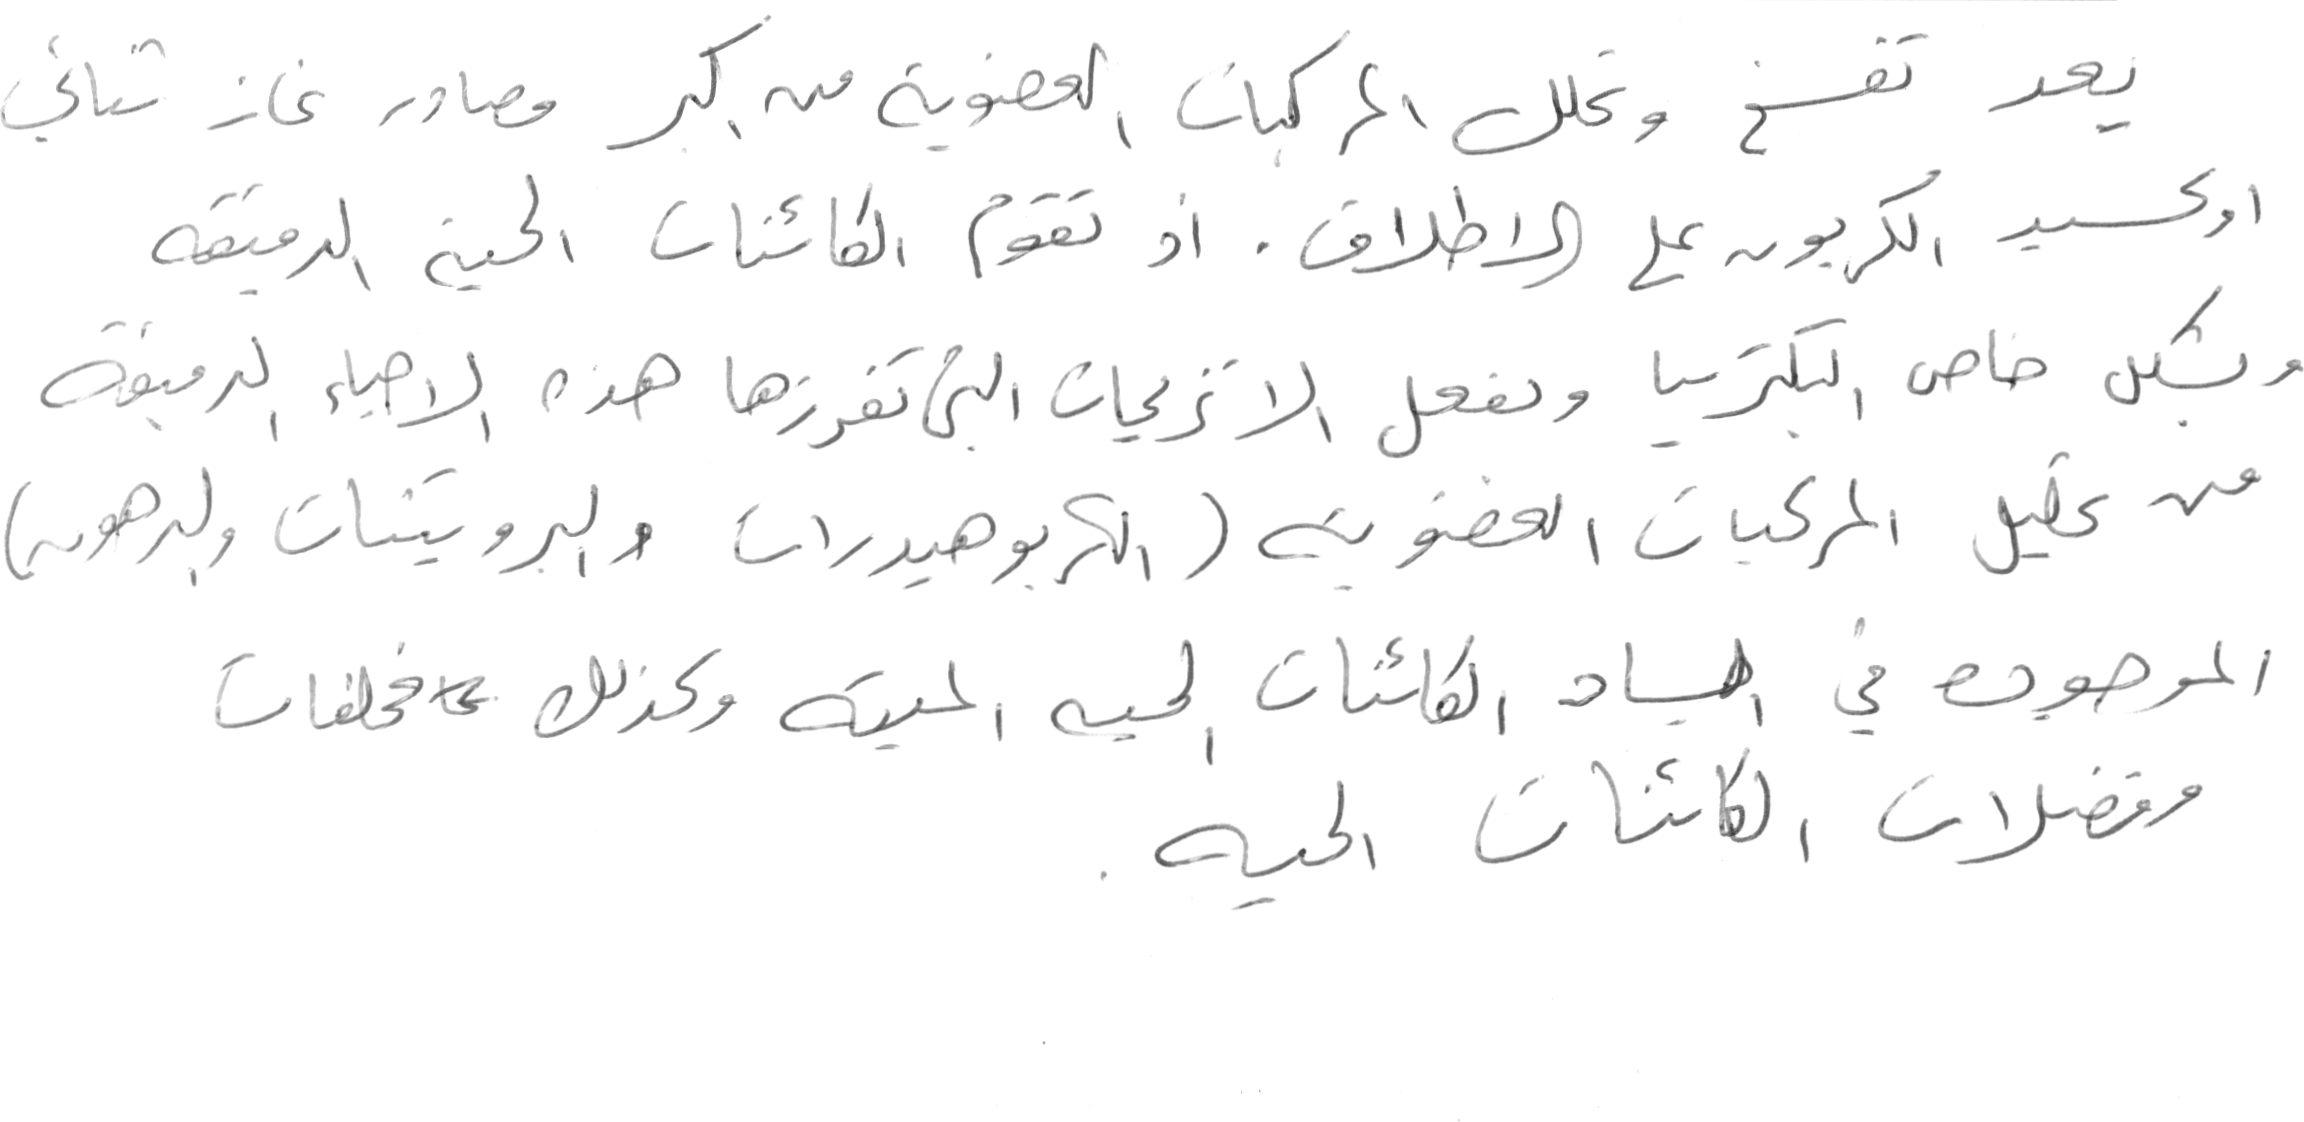 يعد تفسخ وتحلل المركبات العضوية من اكبر مصادر غاز ثنائي
اوكسيد الكربون على الاطلاق. اذ تقوم الكائنات الحية الدقيقه
وبشكل خاص البكتريا وبفعل الانزيمات التي تفرزها هذه الاحياء الدقيقة
من تحليل المركبات العضوية (الكربوهيدرات والبروتينات والدهون)
الموجوده في اجساد الكائنات الحيه الميته وكذلك مخلفات
وفضلات الكائنات الحيه.